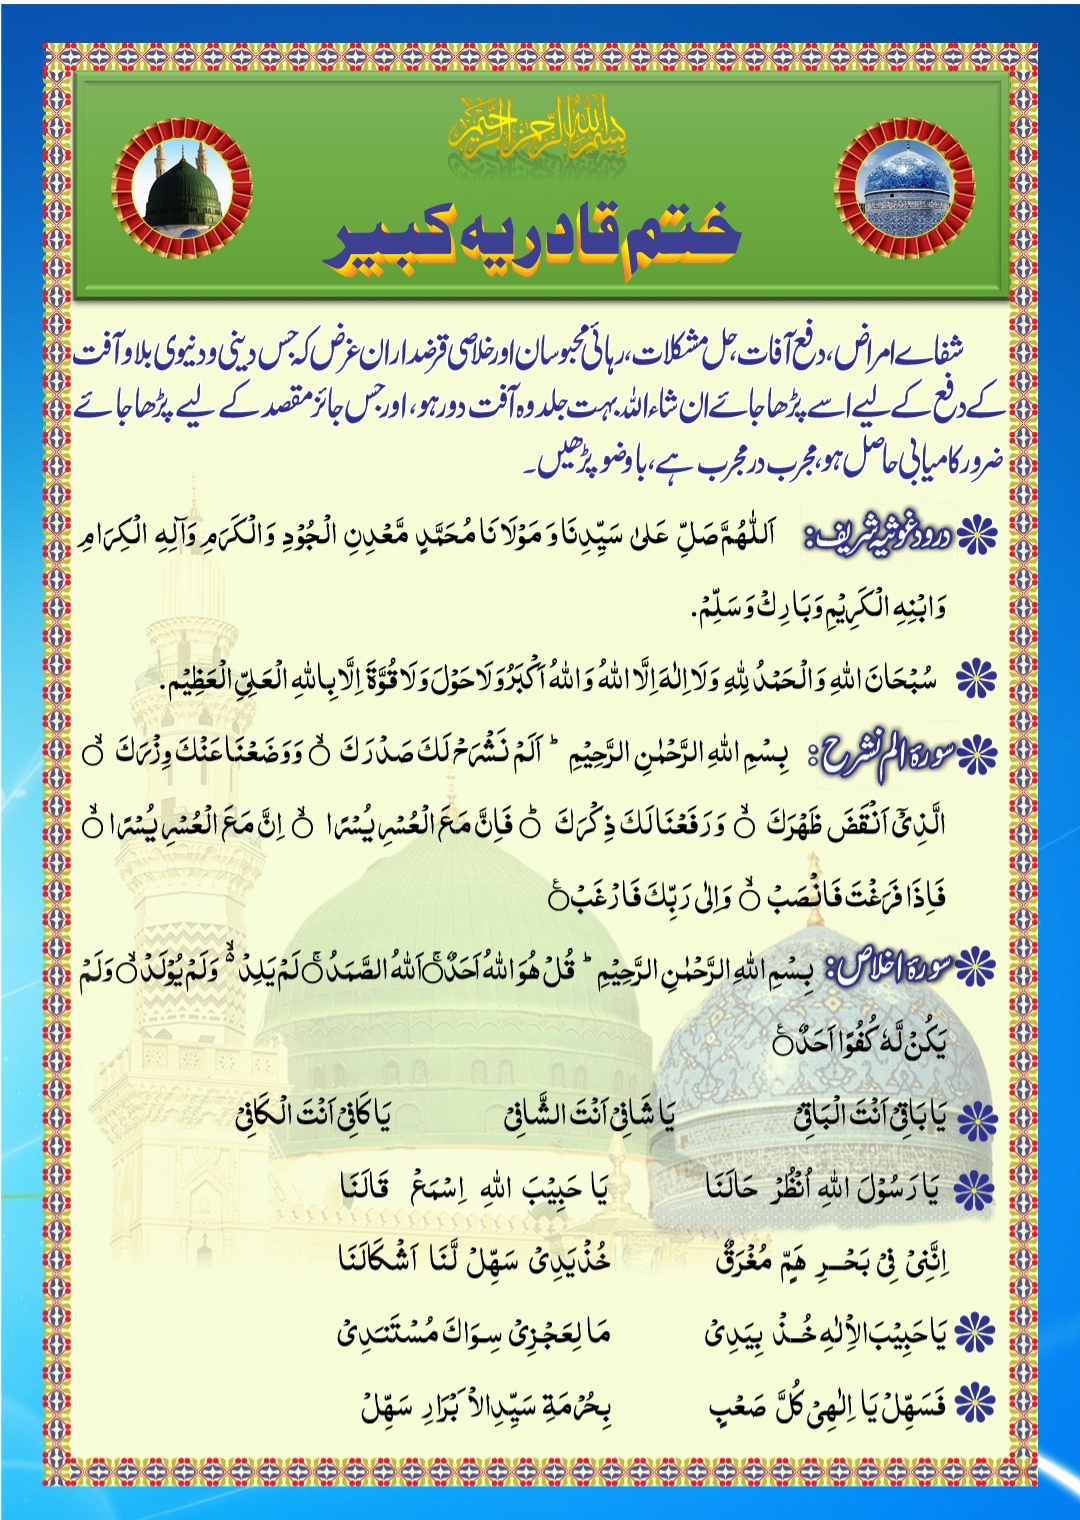 بسم اللہ الرحمن الرحیم
ختم قادریہ کبیر
شفاے امراض، دفع آفات، حل مشکلات، رہائی محبوسان اور خلاصی قرضداران غرض کہ جس دینی و دنیوی بلا و آفت
کے دفع کے لیے اسے پڑھا جائے ان شاء اللہ بہت جلد وہ آفت دور ہو، اور جس جائز مقصد کے لیے پڑھا جائے
ضرور کامیابی حاصل ہو، مجرب در مجرب ہے، با وضو پڑھیں۔
درود غوثیہ شریف: اَللّٰهُمَّ صَلِّ عَلٰى سَيِّدِنَا وَ مَوْلَانَا مُحَمَّدٍ مَّعْدِنِ الْجُوْدِ وَالْكَرَمِ وَآلِهِ الْكِرَامِ
وَابْنِهِ الْكَرِيْمِ وَبَارِكْ وَسَلِّمْ.
سُبْحَانَ اللهِ وَالْحَمْدُ لِلّٰهِ وَلَا اِلٰهَ اِلَّا اللهُ وَاللهُ اَكْبَرُ وَلَا حَوْلَ وَلَا قُوَّةَ اِلَّا بِاللهِ الْعَلِيِّ الْعَظِيْمِ.
سورۂ الم نشرح: بِسْمِ اللهِ الرَّحْمٰنِ الرَّحِيْمِ ؕ اَلَمْ نَشْرَحْ لَكَ صَدْرَكَ ۙ وَوَضَعْنَا عَنْكَ وِزْرَكَ ۙ
الَّذِيْٓ اَنْقَضَ ظَهْرَكَ ۙ وَرَفَعْنَا لَكَ ذِكْرَكَ ؕ فَاِنَّ مَعَ الْعُسْرِ يُسْرًا ۙ اِنَّ مَعَ الْعُسْرِ يُسْرًا ۙ
فَاِذَا فَرَغْتَ فَانْصَبْ ۙ وَاِلٰى رَبِّكَ فَارْغَبْ ۠
سورۂ اخلاص: بِسْمِ اللهِ الرَّحْمٰنِ الرَّحِيْمِ ؕ قُلْ هُوَ اللهُ اَحَدٌ ۚ اَللهُ الصَّمَدُ ۚ لَمْ يَلِدْ ۙ وَلَمْ يُوْلَدْ ۙ وَلَمْ
يَكُنْ لَّهٗ كُفُوًا اَحَدٌ ۠
يَا بَاقِيْ اَنْتَ الْبَاقِيْ يَا شَافِيْ اَنْتَ الشَّافِيْ يَا كَافِيْ اَنْتَ الْكَافِيْ
يَا رَسُوْلَ اللهِ اُنْظُرْ حَالَنَا يَا حَبِيْبَ اللهِ اِسْمَعْ قَالَنَا
اِنَّنِيْ فِيْ بَحْرِ هَمٍّ مُغْرَقٌ خُذْ يَدِيْ سَهِّلْ لَّنَا اَشْكَالَنَا
يَا حَبِيْبَ الْاِلٰهِ خُذْ بِيَدِيْ مَا لِعَجْزِيْ سِوَاكَ مُسْتَنَدِيْ
فَسَهِّلْ يَا اِلٰهِيْ كُلَّ صَعْبٍ بِحُرْمَةِ سَيِّدِ الْاَبْرَارِ سَهِّلْ